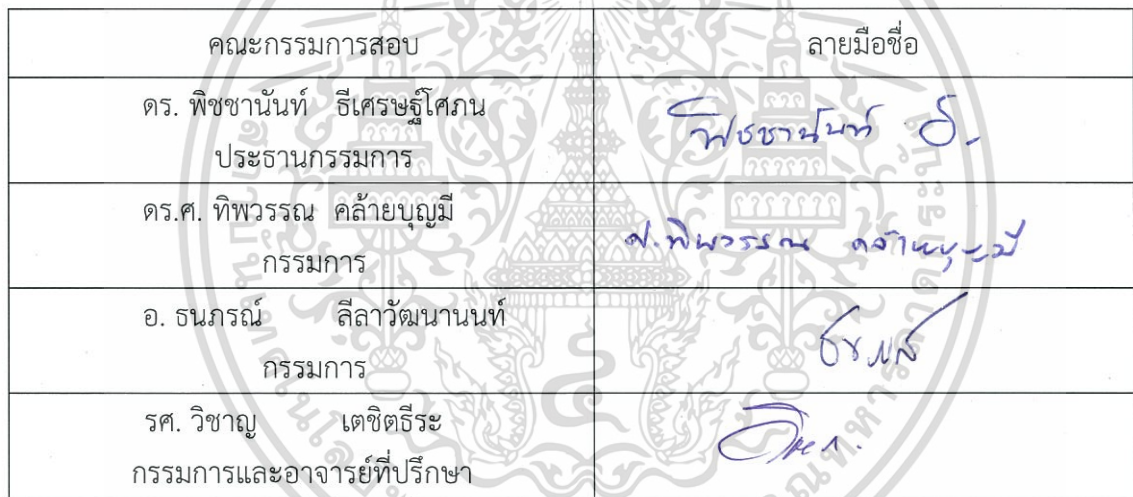 คณะกรรมการสอบ ลายมือชื่อ
ดร. พิชชานันท์ ธีเศรษฐ์โศภน
ประธานกรรมการ
พิชชานันท์ ธ.
ดร.ศ. ทิพวรรณ คล้ายบุญมี
กรรมการ
ศ.ทิพวรรณ คล้ายบุญมี
อ. ธนภรณ์ ลีลาวัฒนานนท์
กรรมการ
รศ. วิชาญ เตชิตธีระ
กรรมการและอาจารย์ที่ปรึกษา